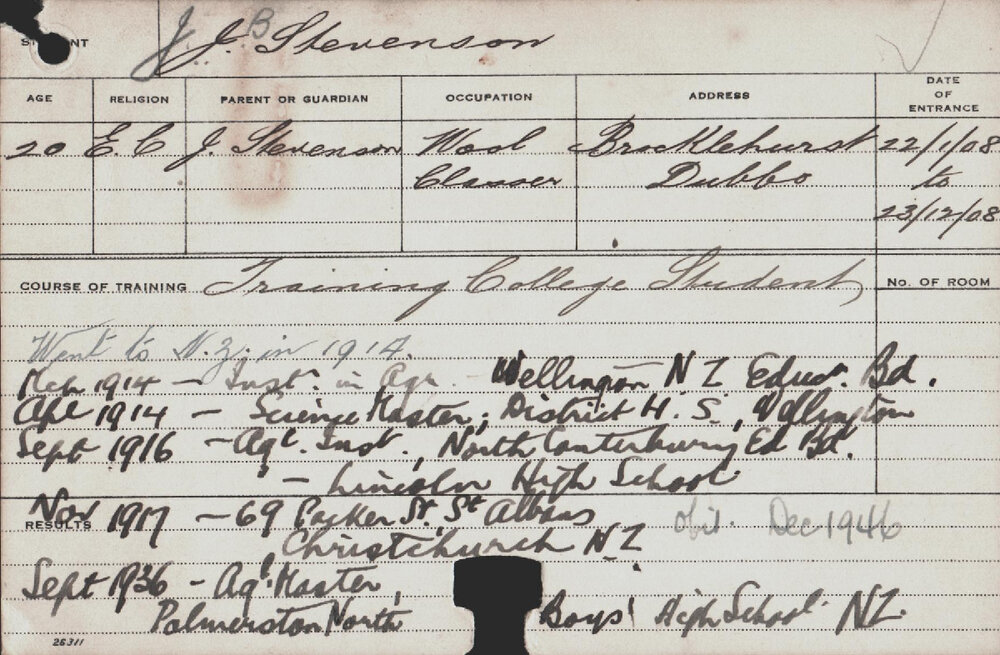 STUDENT J. J. B Stevenson
AGE RELIGION PARENT OR GUARDIAN OCCUPATION ADDRESS DATE OF ENTRANCE
20 E. C J. Stevenson Wool Brocklehurst 22/1/08
Classer Dubbo to
23/12/08
COURSE OF TRAINING Training College Student No. OF ROOM
Went to N.Z. in 1914.
Mch 1914 - Instr. in Agr. Wellington NZ Educ. Bd.
Apl 1914 - Science Master, District H. S., Wellington
Sept 1916 - Agl. Inst., North Canterbury Ed Bd.
- Lincoln High School
RESULTS
Nov 1917 - 69 Packer St. St Albans obit. Dec 1946
Christchurch NZ
Sept 1936 - Agl. Master,
Palmerston North Boys' High School. NZ.
26311